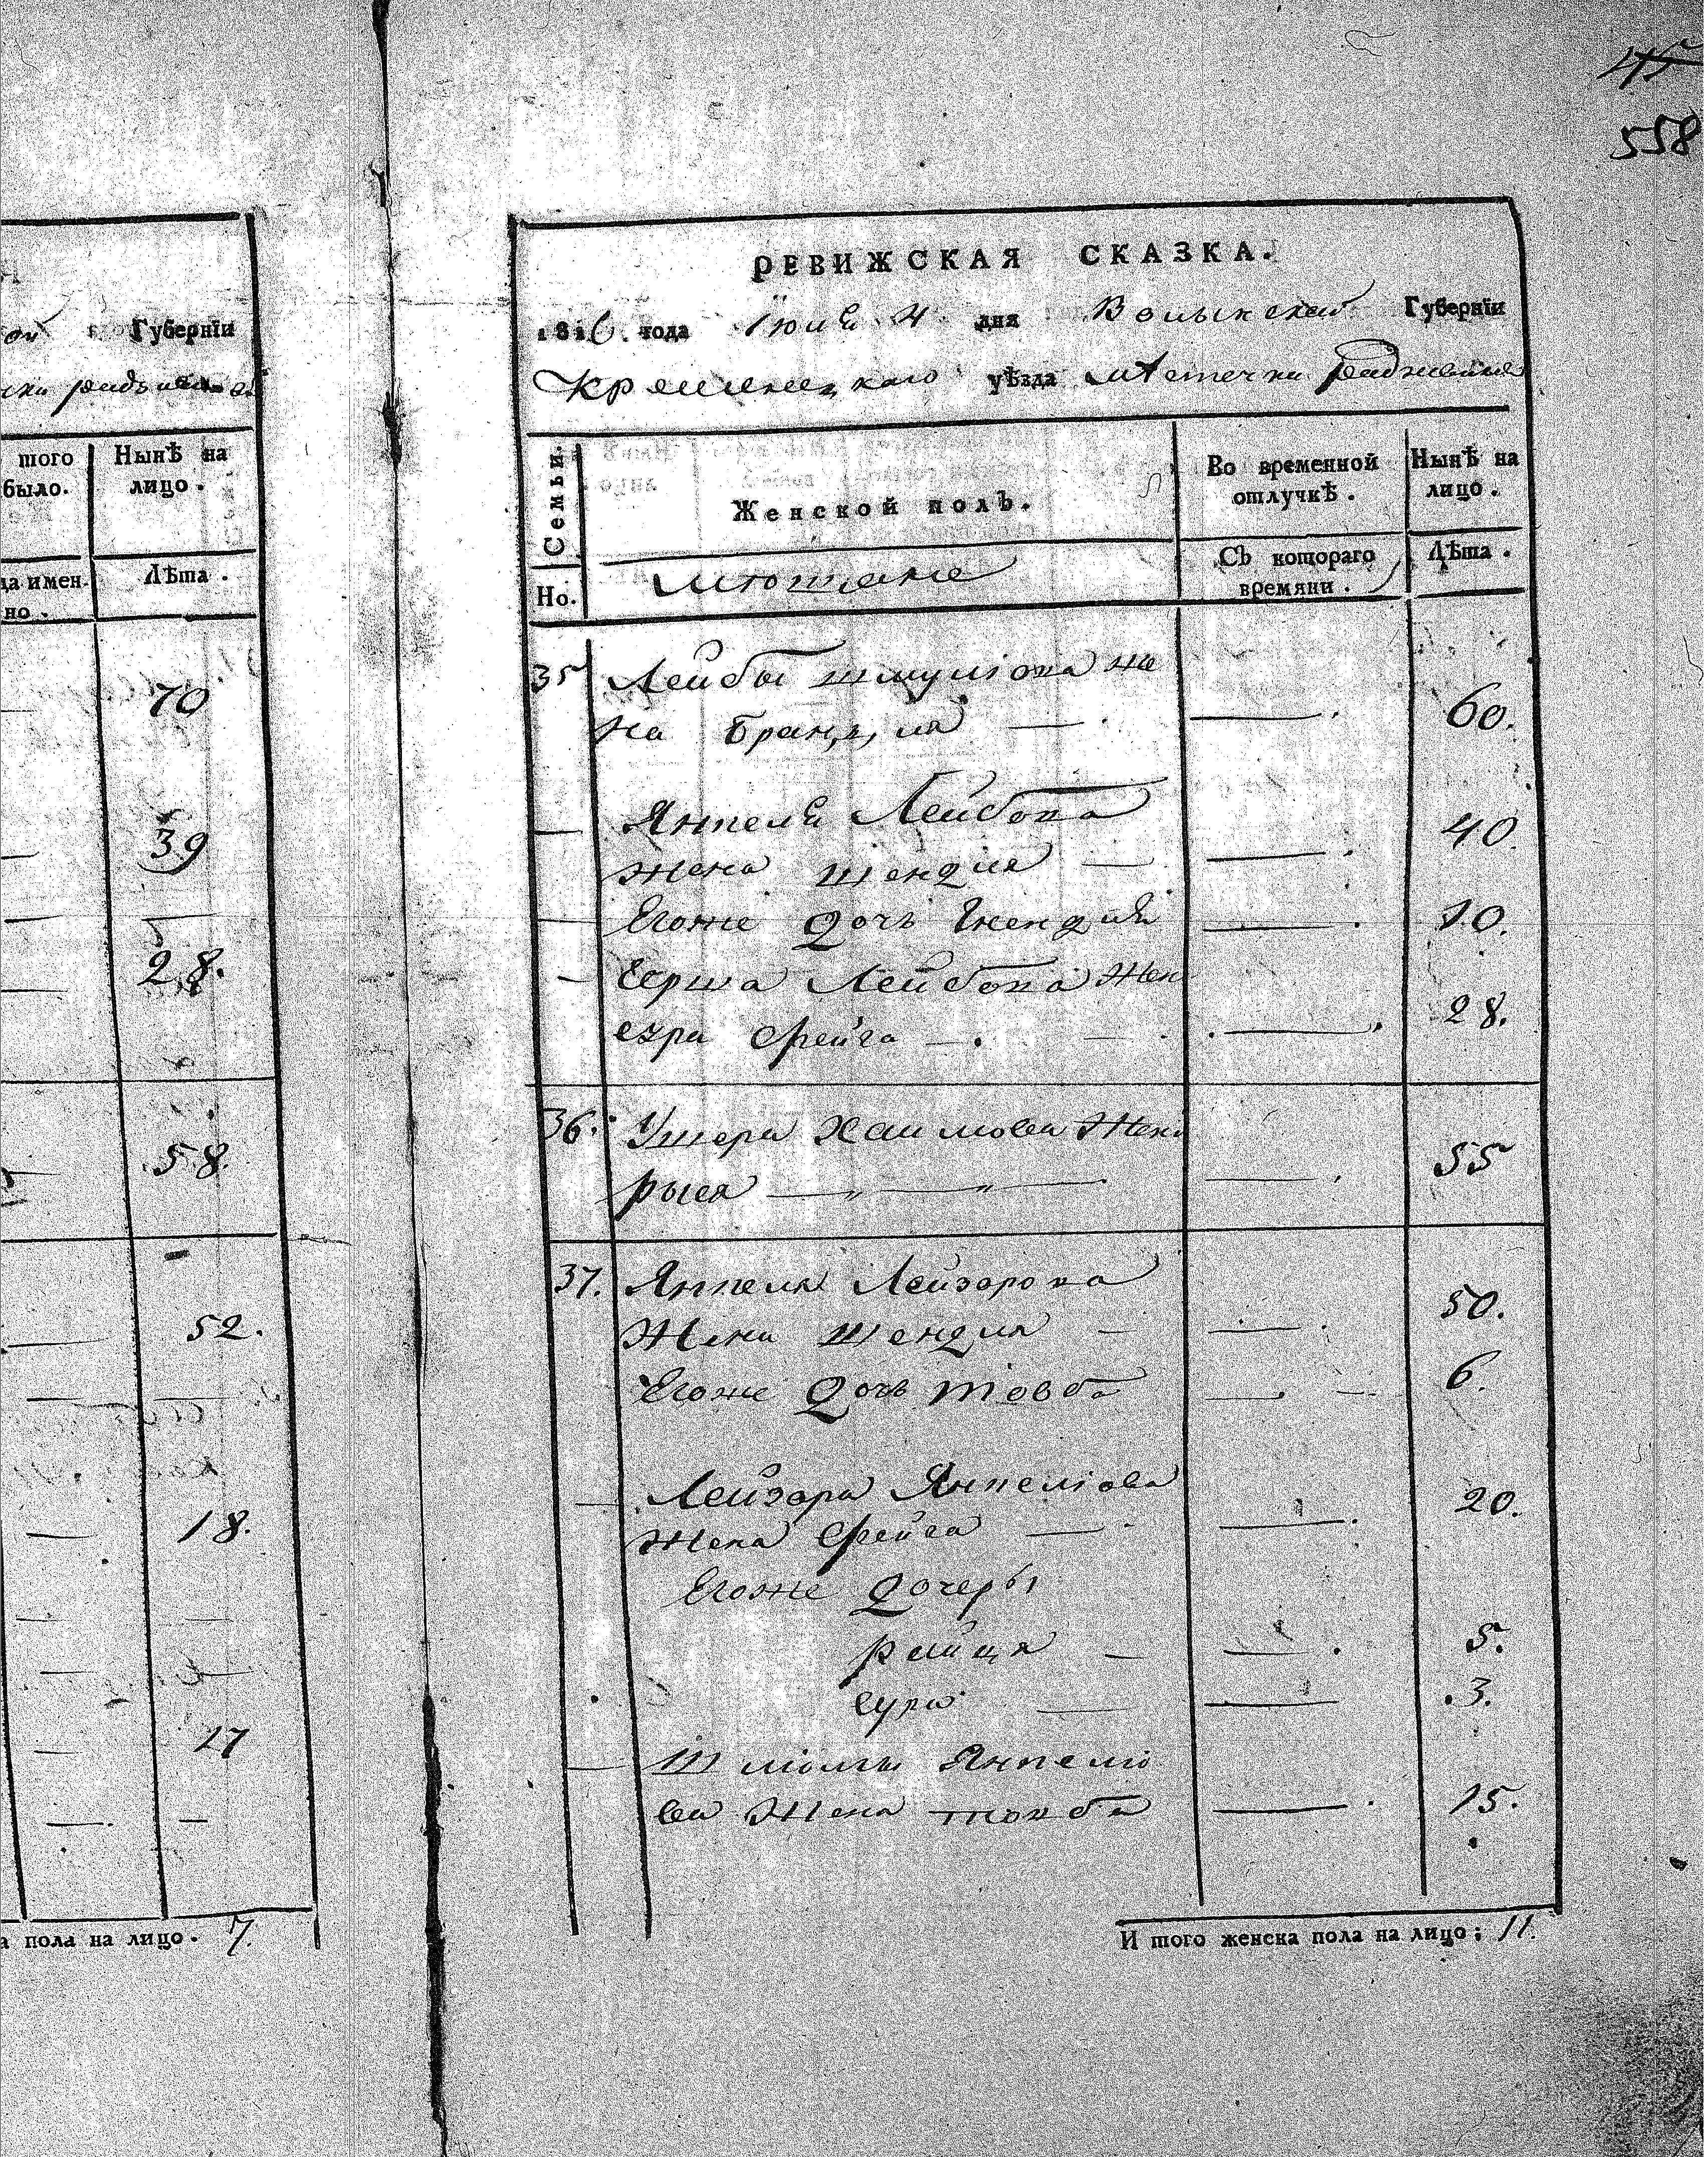 558
Губернїи
Нынѣ на
лицо.
того
было.
да имен-
но.
Лѣта.
70
39
28.
58.
52.
18.
17
а пола на лицо. 7.
РЕВИЖСКАЯ СКАЗКА.
1816. года Іюля 4 дня Волынской Губернїи
Кременецкаго уѣзда Местечка Радзивилова
Семьи.
Но.
Женской полъ.
Во временной
отлучкѣ.
Нынѣ на
лицо.
Съ котораго
времяни.
Лѣта.
35 Лейбы Шмулiова же
на Бранцля — 60.
— Янкеля Лейбова
жена Шендля — 40.
— Егоже дочь Гнендля 10.
— Герша Лейбова Жен
Фейга — 28.
36. Ушера Хаимова Жена
Рыся — 55
37. Янкеля Лейзорова
Жена Шендля — 50.
Егоже дочь Товба 6.
— Лейзора Янкелiова
жена Фейга — 20.
Егоже дочеры
Рейця — 5.
Сура — 3.
— Шлiомы Янкелiо
ва Жена Товба 15.
И того женска пола на лицо; 11.